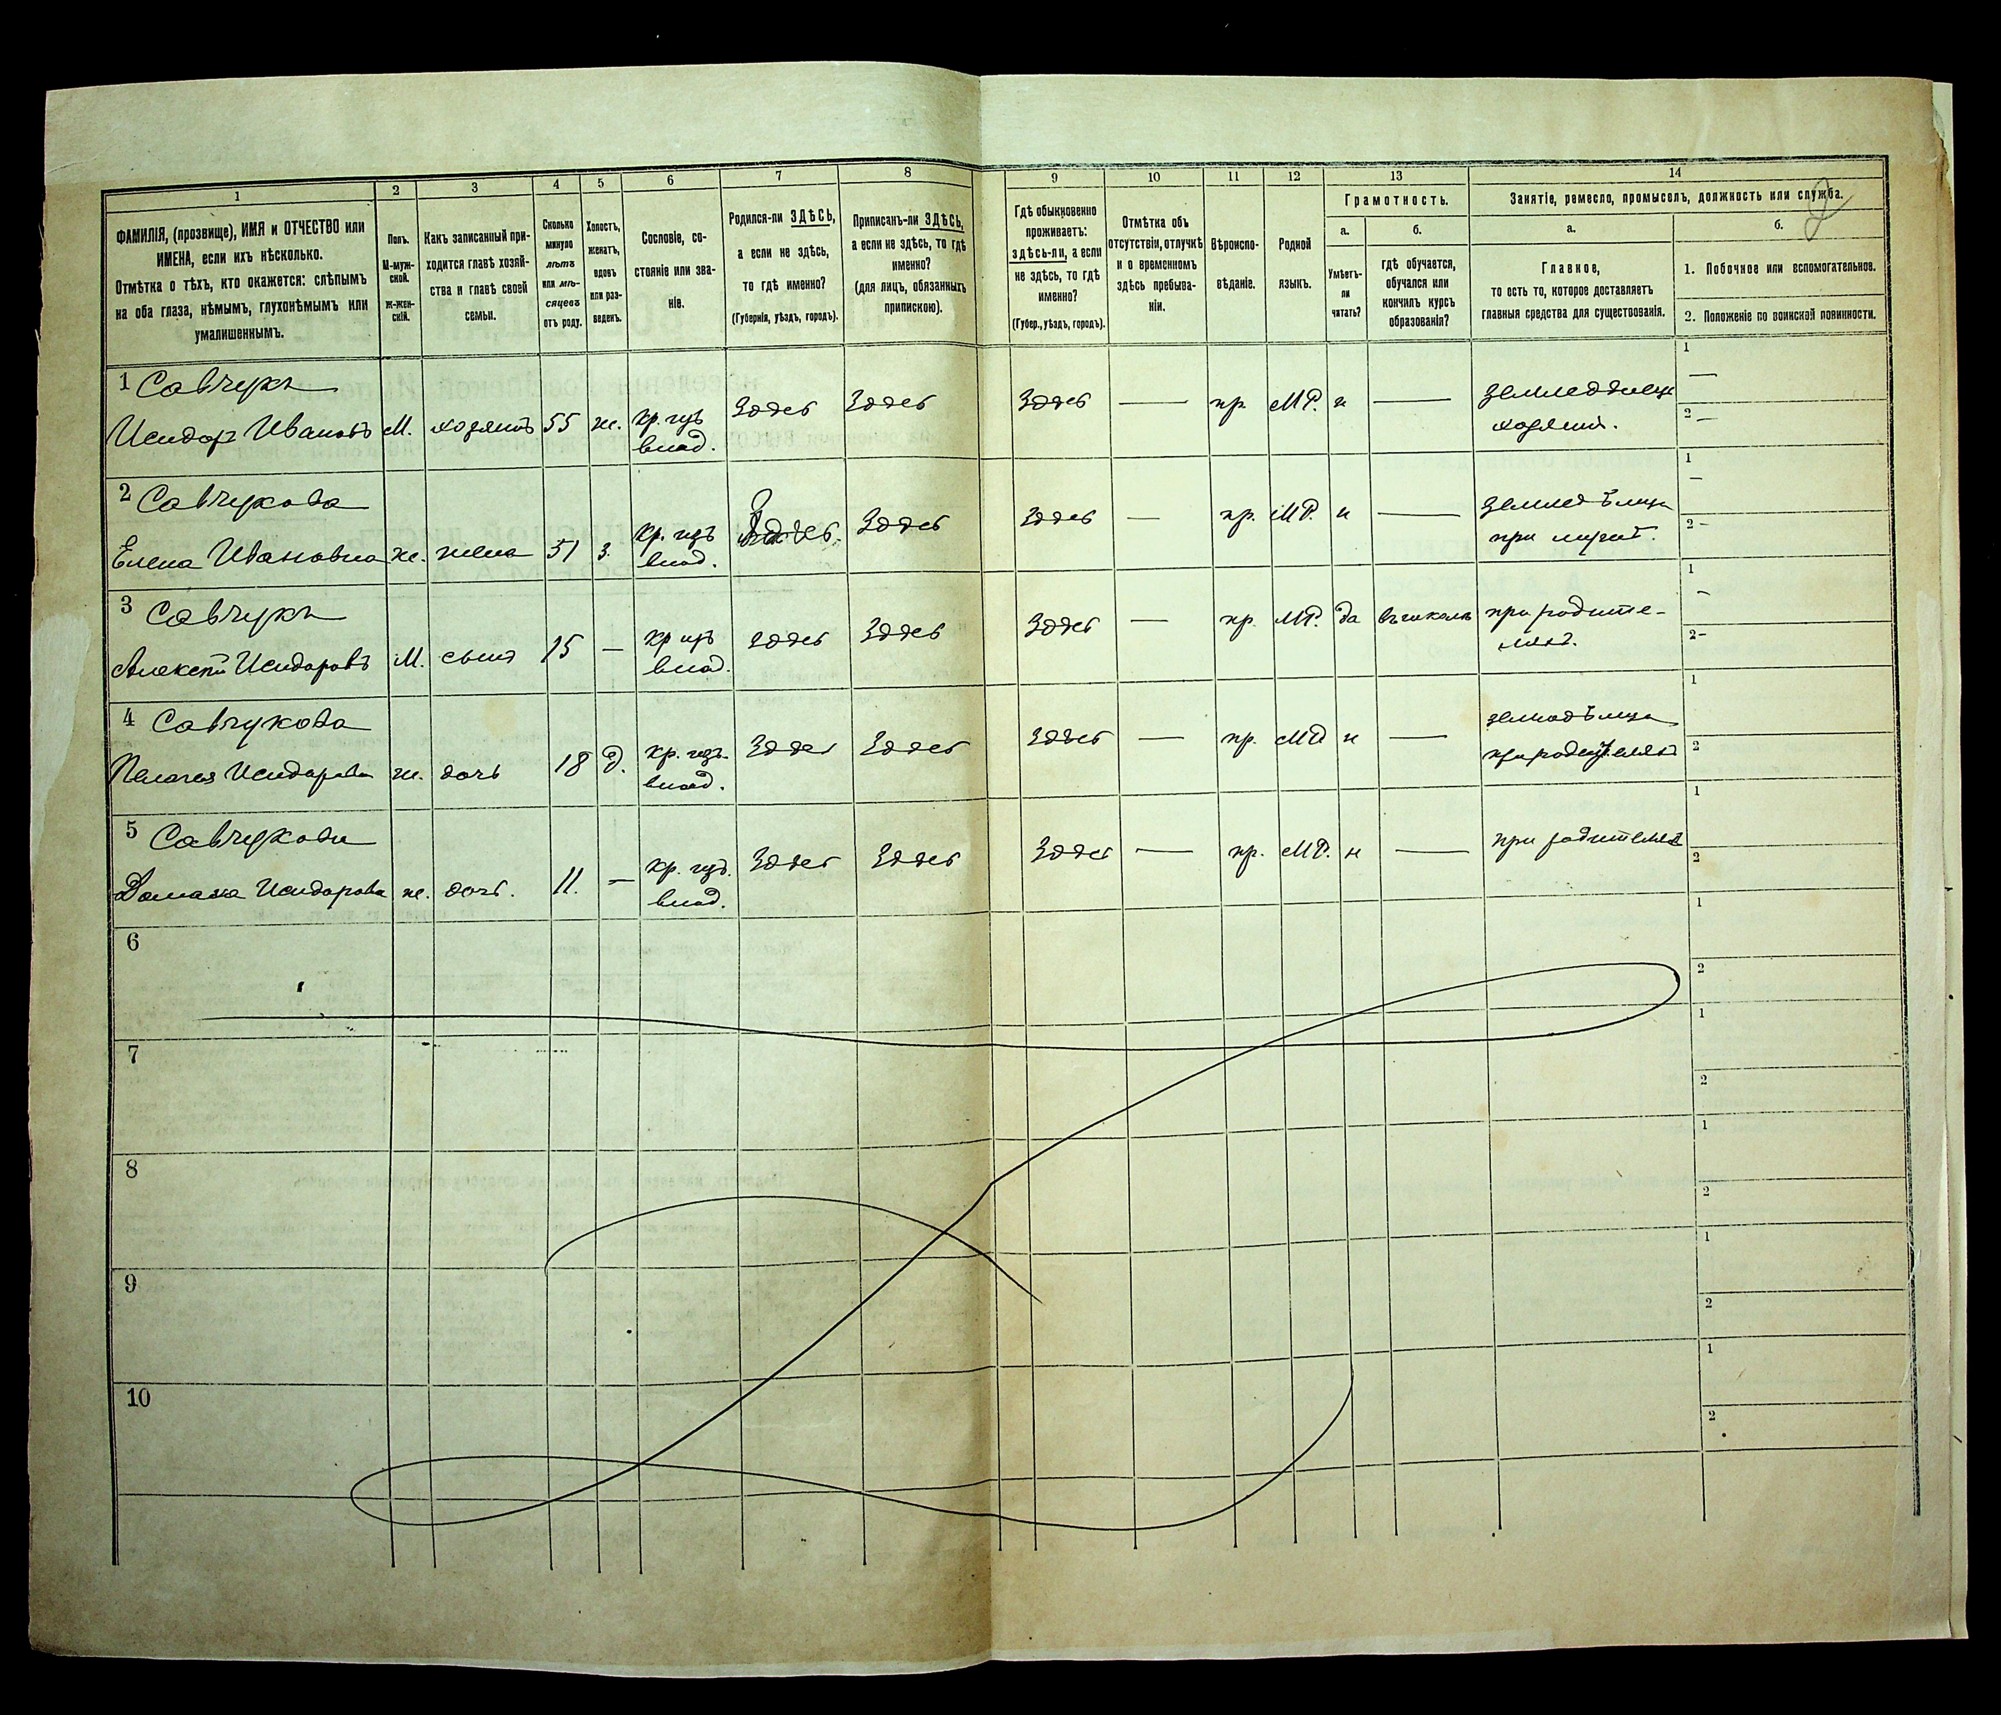 1
2
3
4
5
6
7
8
9
10
11
12
13
14
ФАМИЛІЯ, (прозвище), ИМЯ и ОТЧЕСТВО или
ИМЕНА, если ихъ нѣсколько.
Отмѣтка о тѣхъ, кто окажется: слѣпымъ
на оба глаза, нѣмымъ, глухонѣмымъ или
умалишеннымъ.
Полъ.
М-муж-
ской.
Ж-жен-
скій.
Какъ записанный при-
ходится главѣ хозяй-
ства и главѣ своей
семьи.
Сколько
минуло
лѣтъ
или мѣ-
сяцевъ
отъ роду.
Холостъ,
женатъ,
вдовъ
или раз-
веденъ.
Сословіе, со-
стояніе или зва-
ніе.
Родился-ли ЗДѢСЬ,
а если не здѣсь,
то гдѣ именно?
(Губернія, уѣздъ, городъ).
Приписанъ-ли ЗДѢСЬ,
а если не здѣсь, то гдѣ
именно?
(для лицъ, обязанныхъ
припискою).
Гдѣ обыкновенно
проживаетъ:
здѣсь-ли, а если
не здѣсь, то гдѣ
именно?
(Губер., уѣздъ, городъ).
Отмѣтка объ
отсутствіи, отлучкѣ
и о временномъ
здѣсь пребыва-
ніи.
Вѣроиспо-
вѣданіе.
Родной
языкъ.
Грамотность.
а.
Умѣетъ-
ли
читать?
б.
гдѣ обучается,
обучался или
кончилъ курсъ
образованія?
Занятіе, ремесло, промыселъ, должность или служба.
2
а.
Главное,
то есть то, которое доставляетъ
главныя средства для существованія.
б.
1. Побочное или вспомогательное.
2. Положеніе по воинской повинности.
1 Савчукъ
Исидоръ Ивановъ М. хозяинъ 55 ж. кр. изъ Здѣсь Здѣсь Здѣсь — пр. МР. н — земледѣлецъ 1 —
влад. хозяинъ. 2 —
2 Савчукова
Елена Ивановна ж. жена 51 з. кр. изъ Здѣсь. Здѣсь Здѣсь — пр. МР. н — земледѣлица 1 —
влад. при мужѣ. 2 —
3 Савчукъ
Алексѣй Исидоровъ М. сынъ 15 — кр изъ здѣсь Здѣсь Здѣсь — пр. МР. да въ школѣ при родите- 1 —
влад. ляхъ. 2 —
4 Савчукова
Пелагея Исидорова ж. дочь 18 д. кр. изъ Здѣсь Здѣсь Здѣсь — пр. МР н — земледѣлица 1
влад. при родителяхъ 2
5 Савчукова
Домаха Исидорова ж. дочь. 11. — кр. изъ Здѣсь Здѣсь Здѣсь — пр. МР. н — при родителяхъ 1
влад. 2
6 1
2
7 1
2
8 1
2
9 1
2
10 1
2